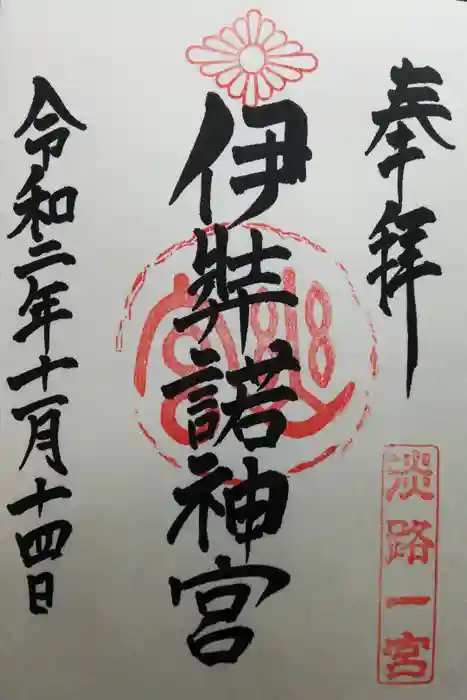 奉拝
淡路一宮
伊弉諾神宮
令和二年十一月十四日